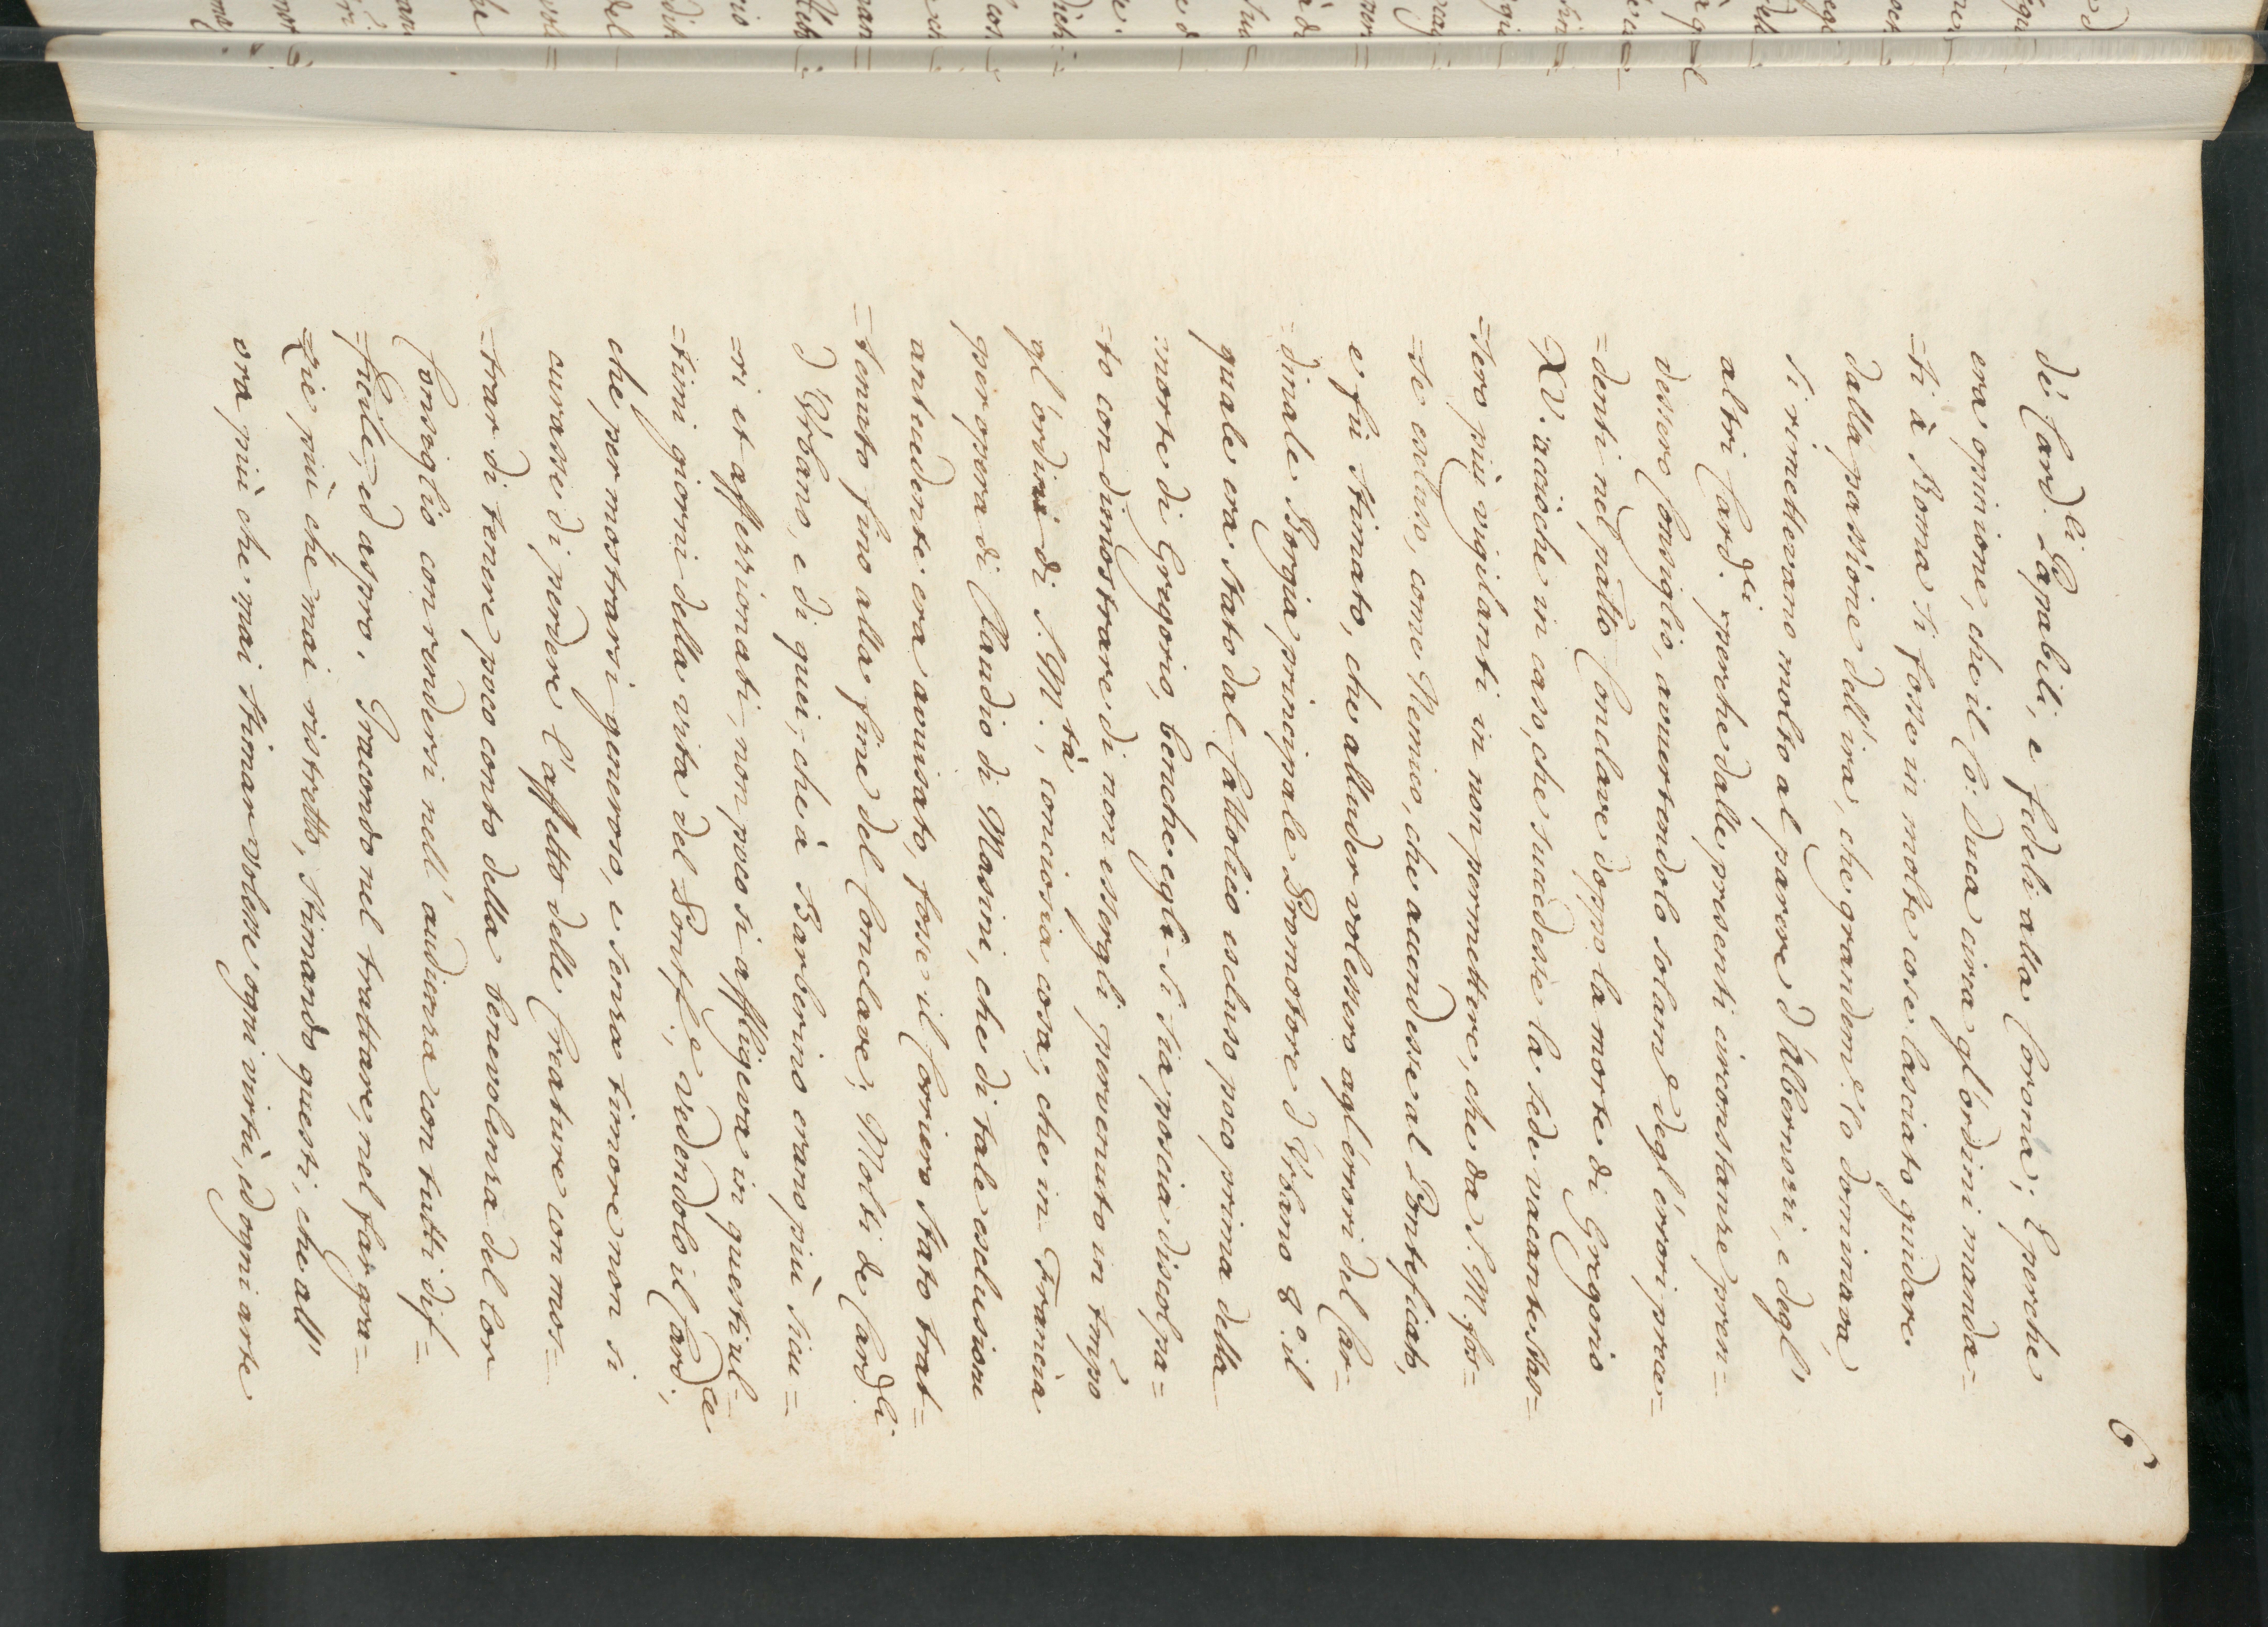 6
de' Card.li Papabili, e fedeli alla Corona; E perche
era opinione, che il Co: Duca circa gl'ordini manda=
=ti à Roma si fosse in molte cose lasciato guidare
dalla passione dell'ira, che grandem.e lo dominava,
si rimettevano molto al parere d'Albernozzi, e degl'
altri Card.li perche dalle presenti circonstanze pren=
dessero Consiglio, avvertendolo solam.e degl'errori prece=
=denti nel passato Conclave doppo la morte di Gregorio
XV. acciòche in caso, che succedesse la sede vacante stas=
=sero più vigilanti in non permettere, che da S. M. fos=
=se escluso, come Nemico, che ascendesse al Pontificato,
e fù stimato, che alluder volessero agl'errori del Car=
=dinale Borgia principale Promotore d'Vrbano 8.o il
quale era stato dal Cattolico escluso poco prima della
morte di Gregorio, benche egli si sia poscia discolpa=
=to con dimostrare di non essergli pervenuto in tempo
gl'ordini di S. M.tà, conciosia cosa, che in Francia
per opera di Claudio di Masini, che di tale esclusione
antecedente era avvisato, fosse il Corriero stato trat=
=tenuto fino alla fine del Conclave; Molti de Card.li
d'Vrbano, e di quei, che à Barberino erano più sicu=
=ri et affezzionati, non poco si affligeva in questi ul=
=timi giorni della vita del Pontf.e, vedendolo il Card.le,
che per mostrarsi generoso, e senza timore non si
curasse di perdere l'affetto delle Creature con mos=
=trar di tenere poco conto della benevolenza del lor
Consiglio con rendersi nell'audienza con tutti dif=
=ficile, ed aspro. Iracondo nel trattare, nel far gra=
=zie più che mai ristretto, stimando questi, che all'
ora più che mai stimar volesse ogni virtù, ed ogni arte